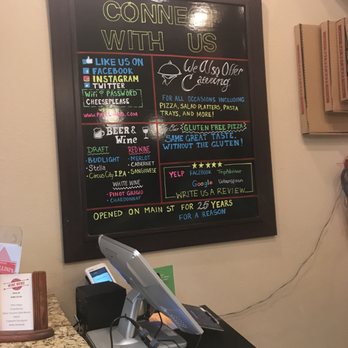 CONNECT
WITH US
LIKE US ON
FACEBOOK
INSTAGRAM
TWITTER
WiFi PASSWORD
CHEESEPLEASE
BEER &
Wine
DRAFT
BUDLIGHT
Stella
RED WINE
MERLOT
CABERNET
SANGIOVESE
WHITE WINE
PINOT GRIGIO
CHARDONNAY
We Also Offer
Catering
FOR ALL OCCASIONS INCLUDING
PIZZA, SALAD PLATTERS, PASTA
TRAYS, AND MORE!
GLUTEN FREE PIZZA
SAME GREAT TASTE,
WITHOUT THE GLUTEN!
YELP FACEBOOK TripAdvisor
Google Urbanspoon
WRITE US A REVIEW
OPENED ON MAIN ST FOR 25 YEARS
FOR A REASON